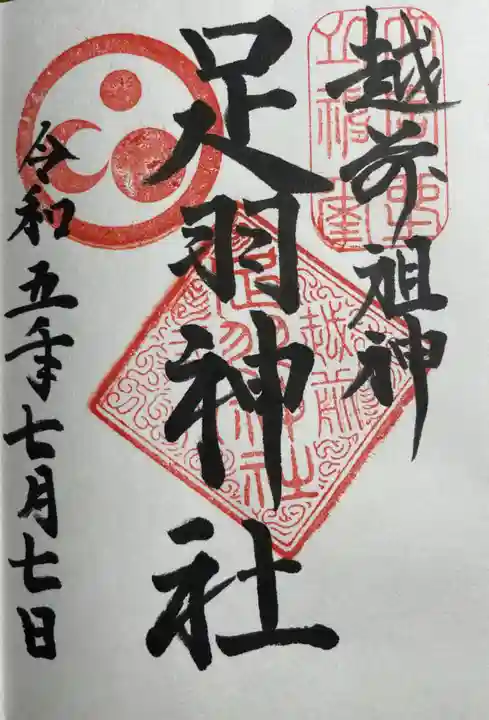 越前祖神
足羽神社
令和五年七月七日
越前
足羽神社